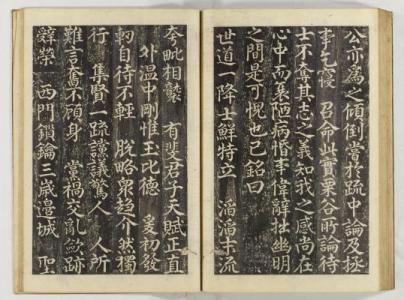 公亦爲之傾倒嘗於疏中論及極
事乞寢 召命此實栗谷所論待
士不奪其志之義知我之感尚在
心中而陋病惛事偉辭拙幽明
之間是可愧也已銘曰
世道一降士鮮特立 滔滔末流
夸毗相襲 有斐君子天賦正直
外溫中剛惟玉比德 爰初發
軔自待不輕 脫略衆趍介然獨
行 集賢一疏讜議驚人 人所
難言奮不顧身 黨禍交亂歛跡
辭榮 西門鎖鑰三歲邊城 聖